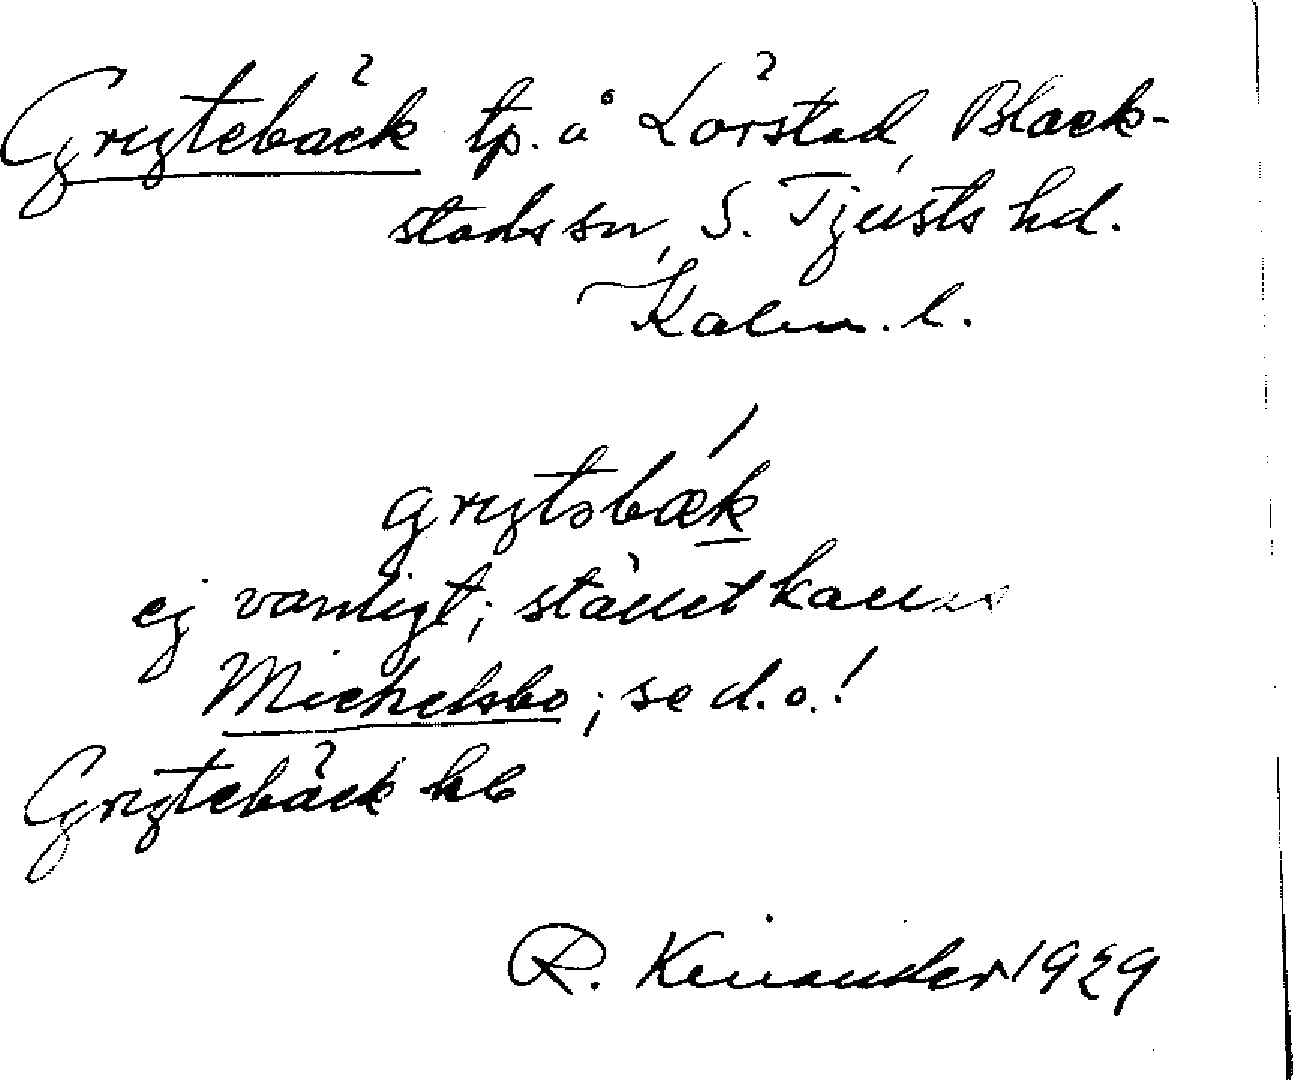 Grytebäck tp. å Lörstad, Black-
stads sn, S. Tjusts hd.
Kalm. l.
grytəbæk
ej vanligt; stället kallas
Michelsbo; se d.o.!
Grytebäck kb
R. Kinander 1929